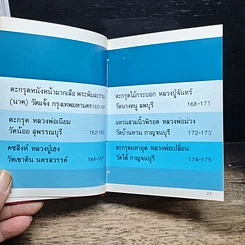 ตะกรุดหนังหน้าผากเสือ พระพิมลธรรม
(นาค) วัดแจ้ง กรุงเทพมหานคร 160-161
ตะกรุด หลวงพ่อเนียม
วัดน้อย สุพรรณบุรี 162-163
คชสิงห์ หลวงปู่เฮง
วัดเขาดิน นครสวรรค์ 164-167
ตะกรุดไม้กระบอก หลวงปู่จันทร์
วัดนางหนู ลพบุรี 168-171
แหวนสามนิ้วพิรอด หลวงพ่อม่วง
วัดบ้านทวน กาญจนบุรี 172-173
ตะกรุดมหาอุด หลวงพ่อเปลี่ยน
วัดใต้ กาญจนบุรี 174-175